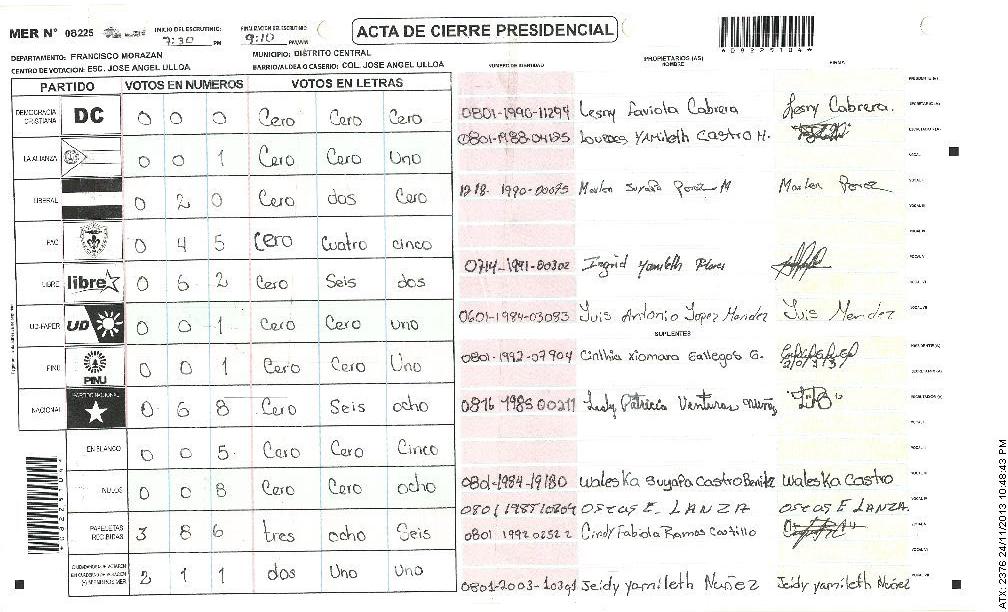 MER N° 08225
INICIO DEL ESCRUTINIO: 7:30 PM
FINALIZACION DEL ESCRUTINIO: 9:10 PM/AM
ACTA DE CIERRE PRESIDENCIAL
DEPARTAMENTO: FRANCISCO MORAZAN
MUNICIPIO: DISTRITO CENTRAL
CENTRO DE VOTACION: ESC. JOSE ANGEL ULLOA
BARRIO/ALDEA O CASERIO: COL. JOSE ANGEL ULLOA
PARTIDO VOTOS EN NUMEROS VOTOS EN LETRAS
DEMOCRACIA CRISTIANA DC 0 0 0 Cero Cero Cero
LA ALIANZA 0 0 1 Cero Cero Uno
LIBERAL 0 2 0 Cero dos Cero
PAC 0 4 5 Cero Cuatro cinco
LIBRE libre 0 6 2 Cero Seis dos
UD-FAPER UD 0 0 1 Cero Cero uno
PINU PINU 0 0 1 Cero Cero Uno
NACIONAL PARTIDO NACIONAL 0 6 8 Cero Seis ocho
EN BLANCO 0 0 5 Cero Cero Cinco
NULOS 0 0 8 Cero Cero ocho
PAPELETAS RECIBIDAS 3 8 6 tres ocho Seis
2 1 1 dos Uno Uno
NUMERO DE IDENTIDAD PROPIETARIOS (AS) NOMBRE FIRMA
0801-1990-11294 Lesny Faviola Cabrera Lesny Cabrera.
0801-1988-04135 Lourdes Yamileth Castro H.
1218-1990-00075 Marlen Suyapa Perez M Marlen Perez
0714-1991-00302 Ingrid Yamileth Flores
0601-1984-03093 Luis Antonio Lopez Mendez Luis Mendez
SUPLENTES
0801-1992-07904 Cinthia Xiomara Gallegos G.
0816 1985 00211 Lesly Patricia Venturas Nuñez
0801-1984-19180 Waleska Suyapa Castro Benitez Waleska Castro
OSCAS E. LANZA OSCAS E LANZA
0801 1992 02522 Cindy Fabiola Ramos Castillo
0801-2003-10391 Jeidy yamileth Nuñez Jeidy yamileth Nuñez
ATX 2376 24/11/2013 10:48:43 PM